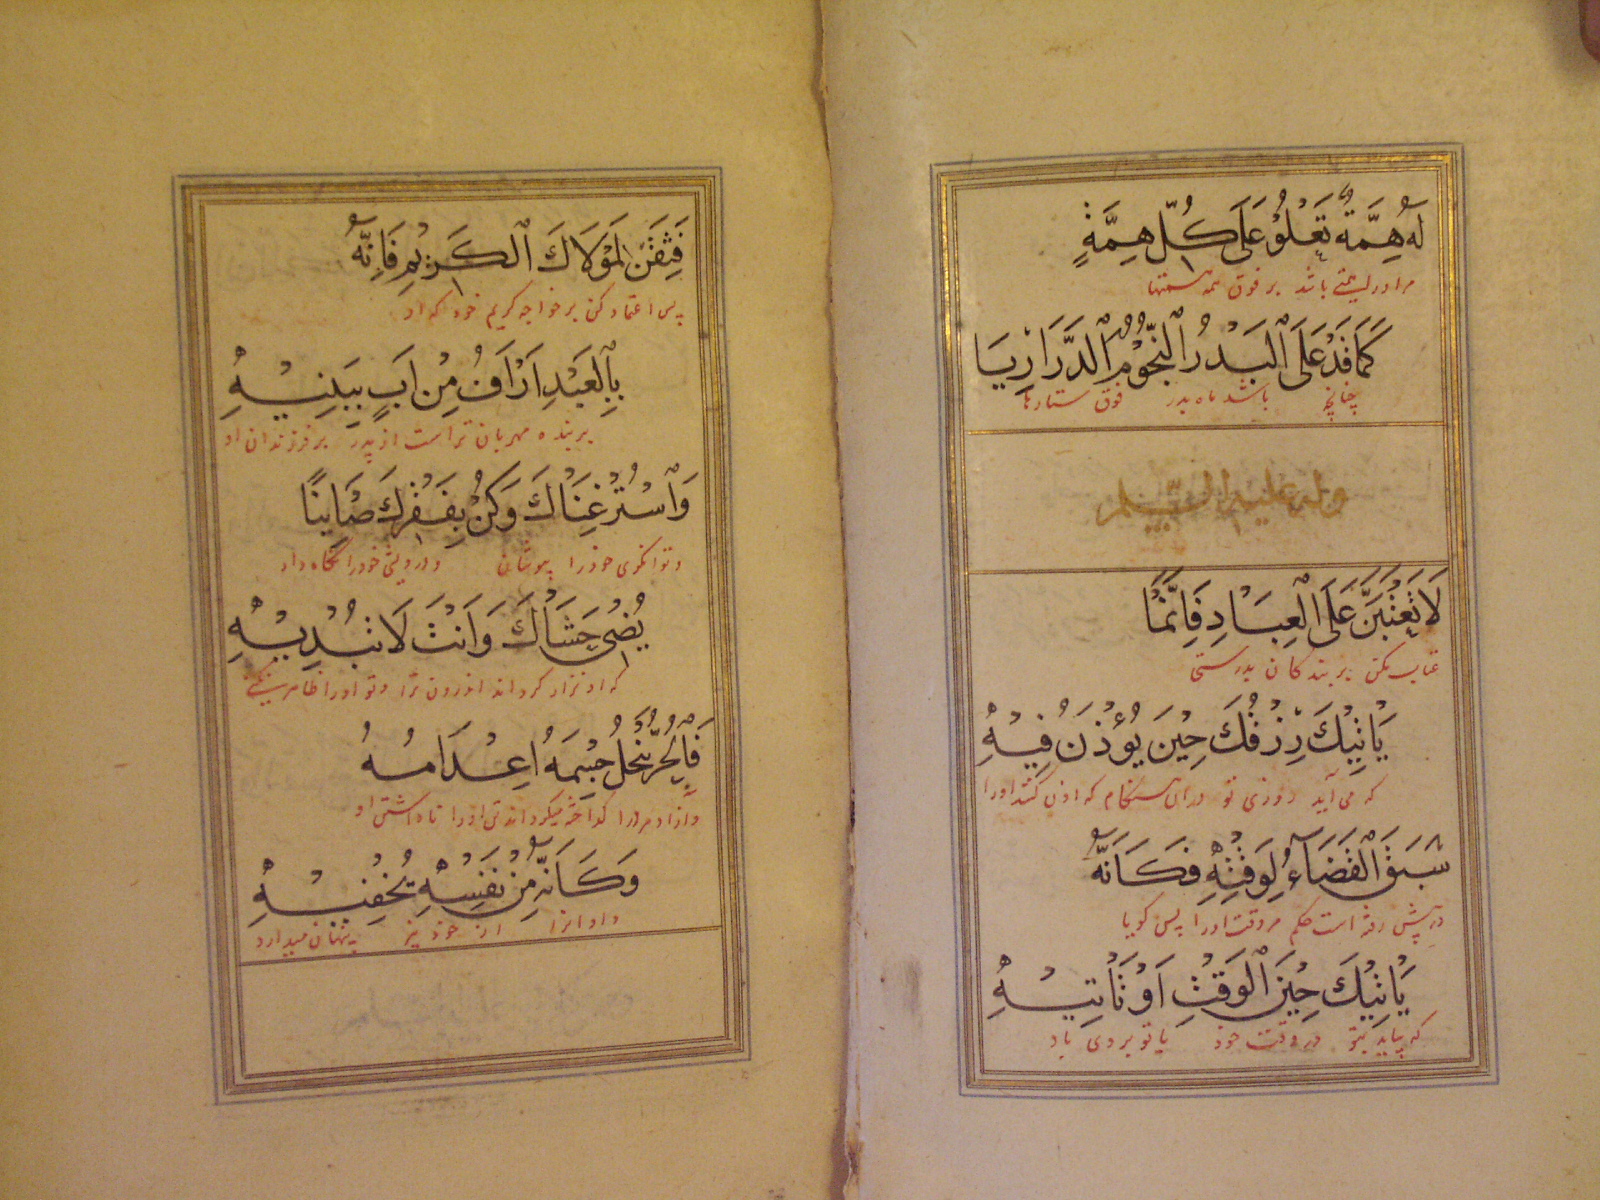 لَهُ هِمَّةٌ تَعْلُوْ عَلَى كُلِّ هِمَّةٍ
مر اورا همتی باشد بر فوق همه همتها
كَمَا قَدْ عَلَى ٱلبَدْرُ ٱلنُّجُوْمَ ٱلدَّرَارِيَا
چنانچه باشد ماه بدر فوق ستارها
وله عليه السلم
لَا تَعْتَبَنَّ عَلَى ٱلعِبَادِ فَاِنَّمَا
عتاب مکن بر بندکان بدرستی
يَأْتِيْكَ رِزْقُكَ حِيْنَ يُؤْذَنُ فِيْهِ
که می آید روزی تو در آن هنگام که اذن کنند اورا
سَبَقَ ٱلقَضَآءُ لِوَقْتِهِ فَكَاَنَّهُ
در پیش رفته است حکم مر وقت اورا پس کویا
يَأْتِيْكَ حِيْنَ ٱلوَقْتِ اَوْ تَأْتِيْهِ
که بیاید بتو در وقت خود یا تو بر وی باد
فَثِقَنْ لِمَوْلَاكَ ٱلكَرِيْمِ فَاِنَّهُ
پس اعتماد کن بر خواجه کریم خود که او
بِالعَبْدِ اَرْاَفُ مِنْ اَبٍ بِبَنِيْهِ
بر بنده مهربان تر است از پدر بر فرزندان او
وَٱسْتُرْ غِنَاكَ وَكُنْ بِفَقْرِكَ صَايِنًا
و توانکری خود را بپوشان و درویشی خود را نکاه دار
يُضْنِي حَشَاكَ وَاَنْتَ لَا تُبْدِيْهِ
که او نزار کرداند اندرون ترا و تو اورا ظاهر نکنی
فَٱلحُرُّ يُنْحِلُ جِسْمَهُ اِعْدَامُهُ
و آزاد مرد را کداخته میکرداند تن اورا ناداشتن او
وَكَاَنَّهُ مِنْ نَفْسِهِ يُخْفِيْهِ
و او انرا از خود نیز پنهان میدارد